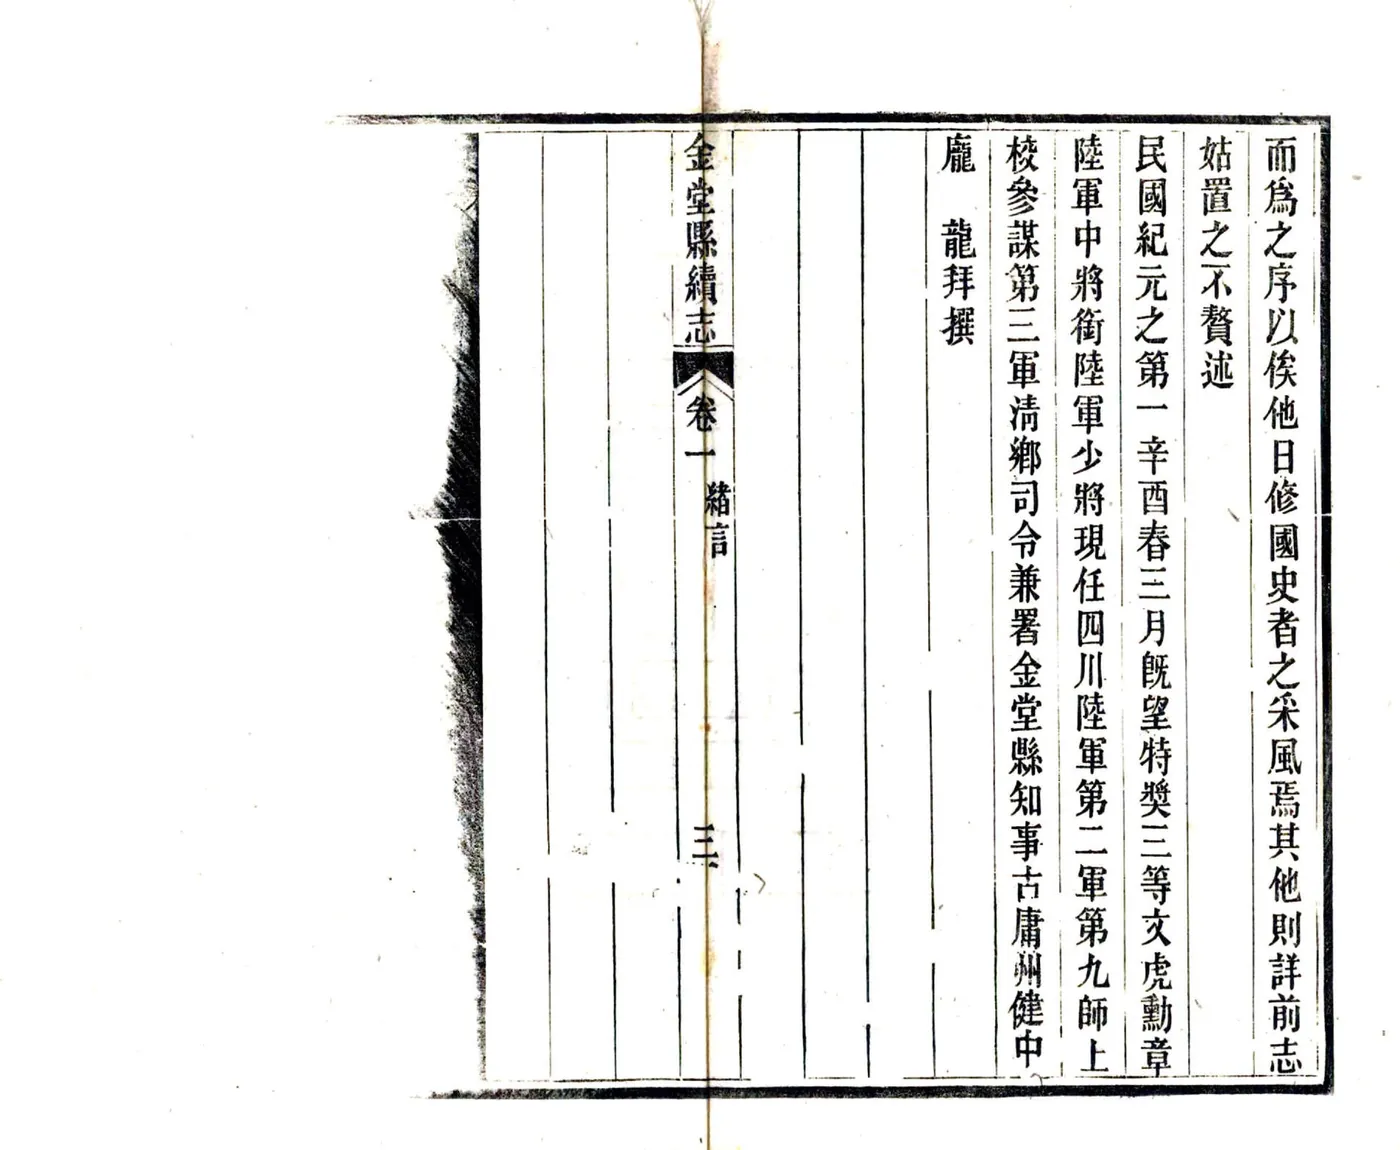 而爲之序以俟他日修國史者之采風焉其他則詳前志
姑置之不贅述
民國紀元之第一辛酉春三月既望特獎三等文虎勳章
陸軍中將銜陸軍少將現任四川陸軍第二軍第九師上
校參謀第三軍清鄉司令兼署金堂縣知事古庸州健中
龐　龍拜撰
金堂縣續志
卷一　緒言
三